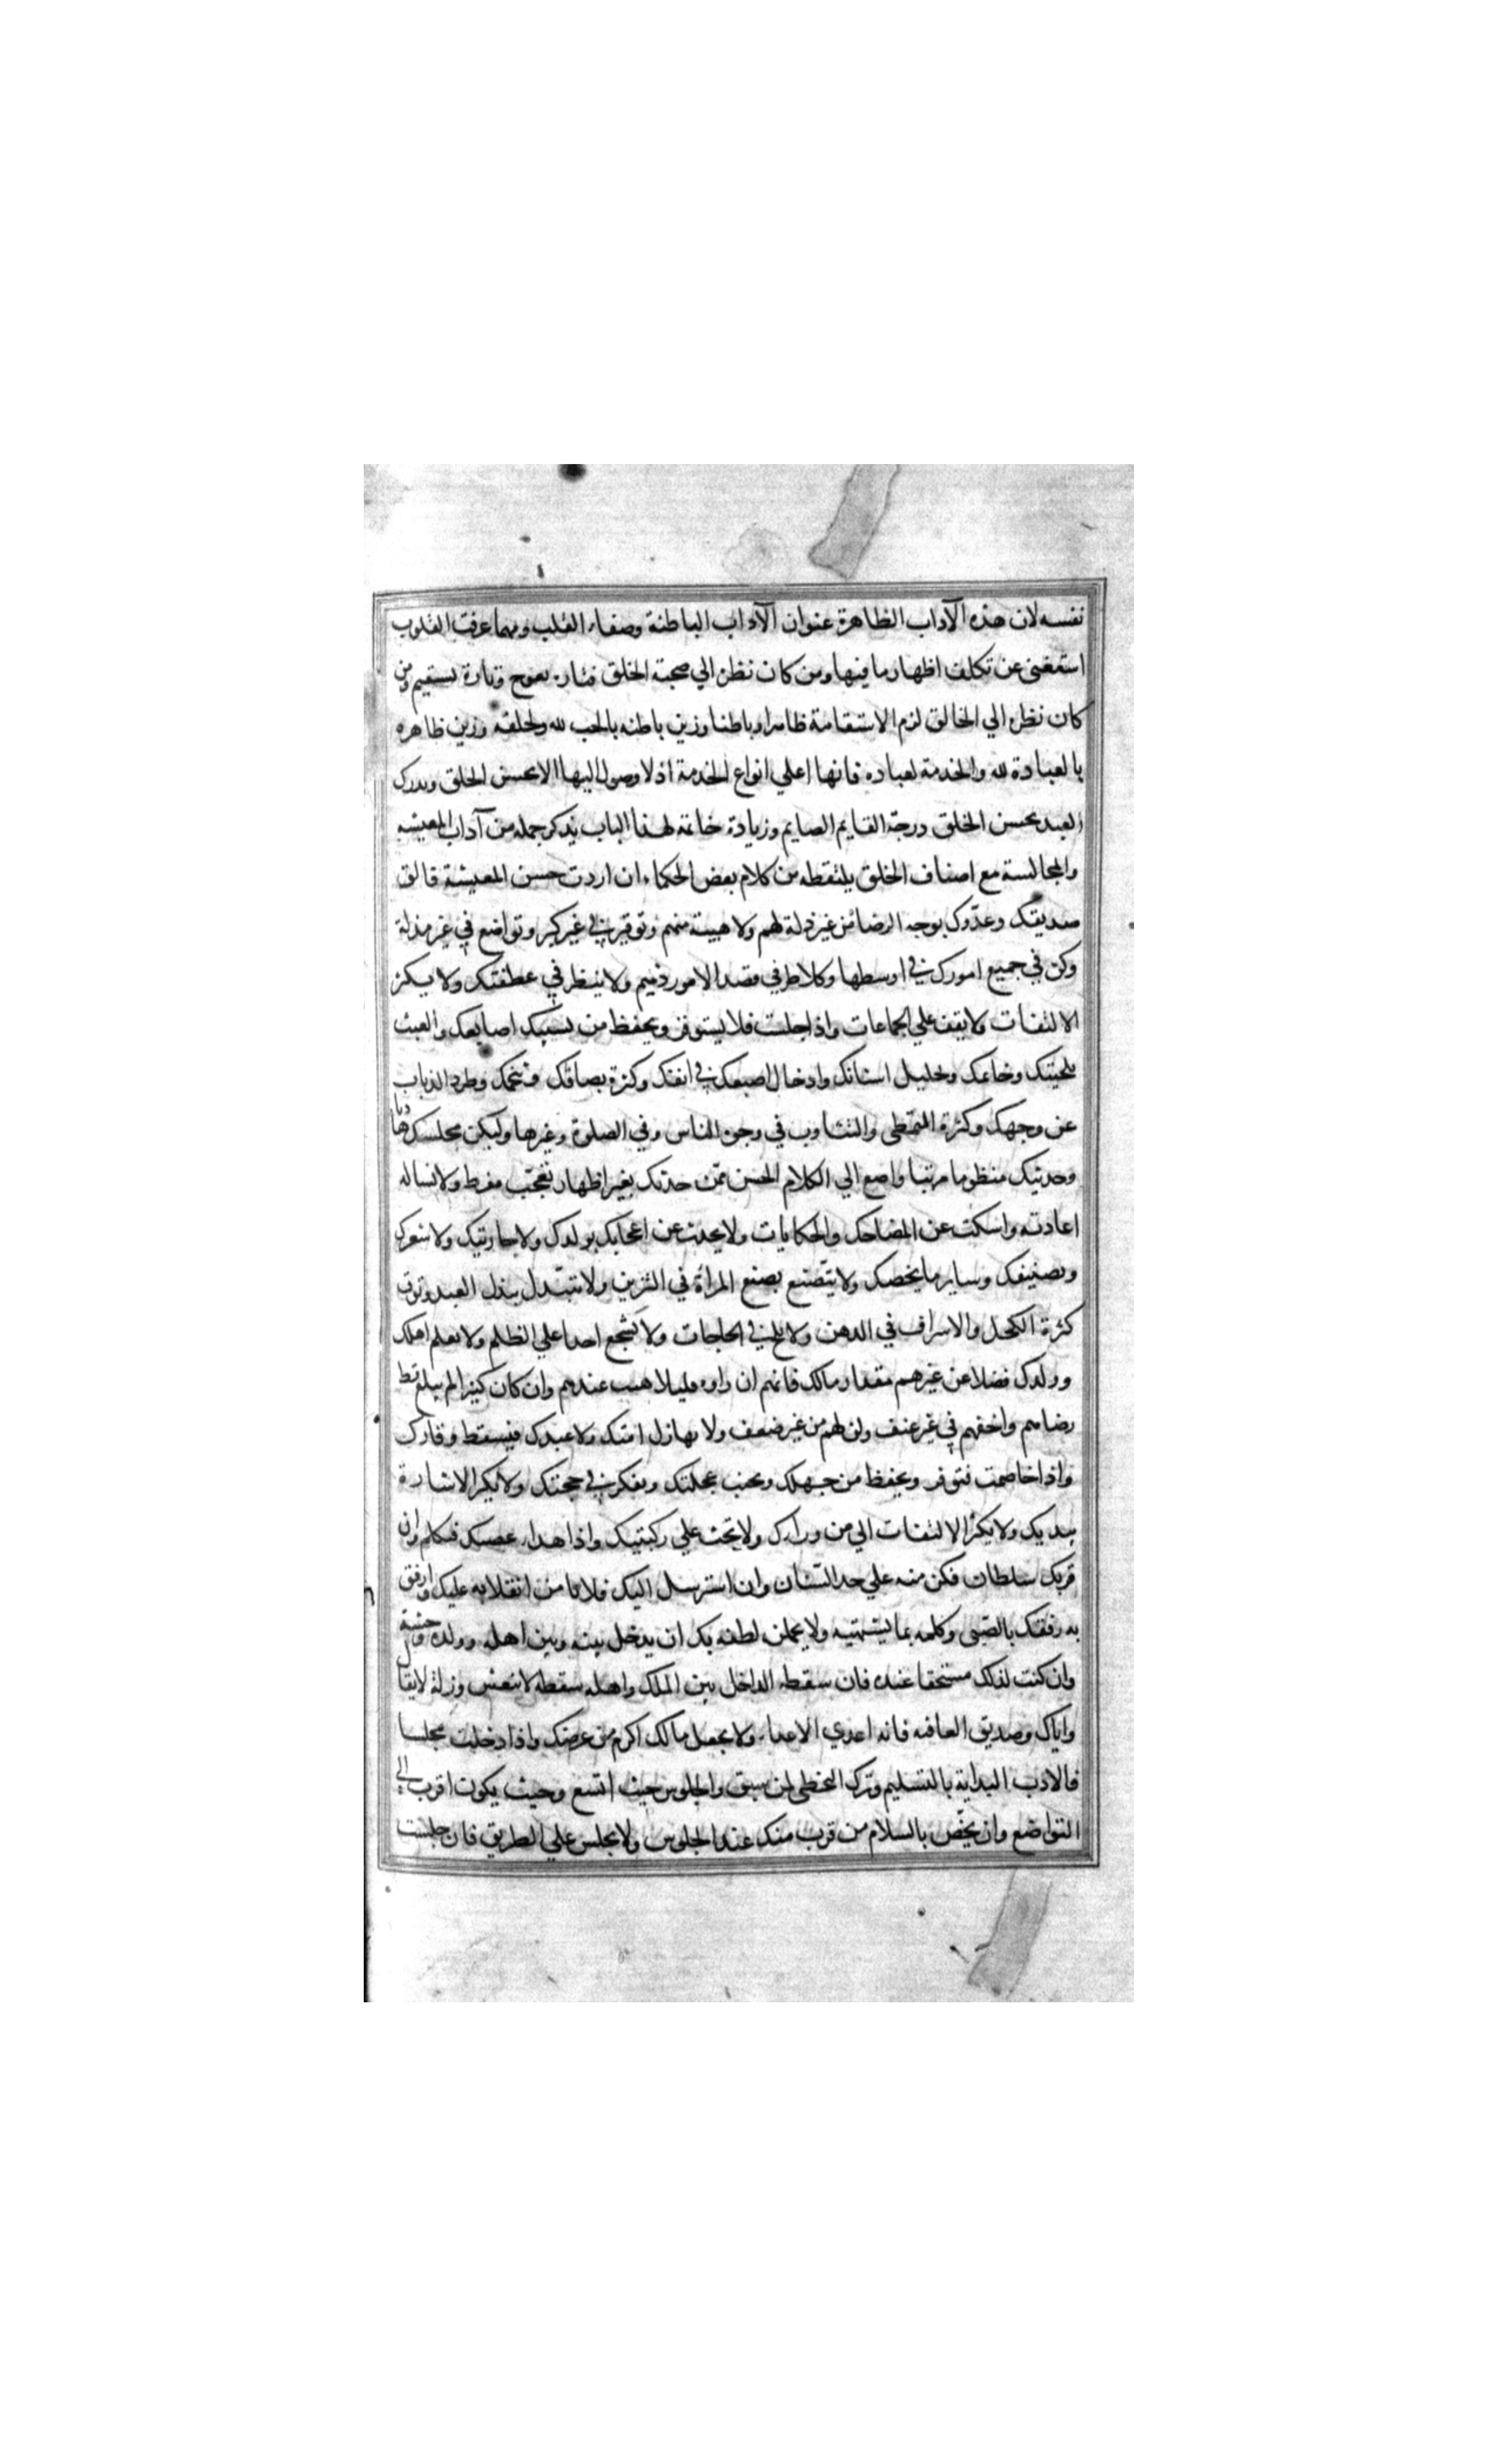 نفسه لان هذه الآداب الظاهرة عنوان الآداب الباطنة وصفاء القلب ومهما عرفت القلوب
استغنى عن تكلف اظهار ما فيها ومن كان نظره الي صحبة الخلق فتارة يعوج وتارة يستقيم ومن
كان نظره الي الخالق لزم الاستقامة ظاهرا وباطنا وزين باطنه بالحب لله ولخلقه وزين ظاهره
بالعبادة لله والخدمة لعباده فانها اعلي انواع الخدمة اذ لا وصول اليها الا بحسن الخلق ويدرك
العبد بحسن الخلق درجة القايم الصايم وزيادة خاتمة لهذا الباب يذكر جمله من آداب المعيشه
والمجالسة مع اصناف الخلق يلتقطه من كلام بعض الحكماء ان اردت حسن المعيشة فالق
صديقك وعدّوك بوجه الرضا من غير ذلة لهم ولا هيبة منهم وتوقير في غير كبر وتواضع في غير مذلة
وكن في جميع امورك في اوسطها وكلا طرفي قصد الامور ذميم ولا ينظر في عطفتك ولا يكثر
الالتفات ولا يقف علي الجماعات واذا جلست فلا يستوفز ويحفظ من تشبيك اصابعك والعبث
بلحيتك وخاتمك وتخليل اسنانك وادخال اصبعك في انفك وكثرة بصاقك وتنخمك وطرد الذباب
عن وجهك وكثرة التمطى والتثاوب في وجوه الناس وفي الصلوة وغيرها وليكن مجلسك هاديا
وحديثك منظوما مرتبا واصغ الي الكلام الحسن ممّن حدثك بغير اظهار تعجّب مفرط ولا تساله
اعادته واسكت عن المضاحك والحكايات ولا يحدث عن اعجابك بولدك ولا جاريتك ولا شعرك
وتصنيفك وساير ما يخصك ولا يتّصنع بصنع المراة في التزين ولا تتبّدل بذل العبد وتوق
كثرة الكحل والاسراف في الدهن ولا يلح في الحاجات ولا يشّجع احدا علي الظلم ولا تعلم اهلك
وولدك فضلا عن غيرهم مقدار مالك فانهم ان راوه قليلا هنت عندهم وان كان كثيرا لم يبلغ قط
رضاهم واخفهم في غير عنف ولن لهم من غير ضعف ولا تهازل امتك ولا عبدك فيسقط وقارك
واذا خاصمت فتوقر وتحفظ من جهلك وتجنب عجلتك وتفكر في حجتك ولا يكثر الاشارة
بيديك ولا يكثر الالتفات الي من وراءك ولا تجث علي ركبتيك واذا هدا غضبك فتكلم وان
قربك سلطان فكن منه علي حد السنان وان استرسل اليك فلا تامن انقلابه عليك وارفق
به رفقك بالصّبى وكلمه بما يشتهيه ولا يحملنه لطفه بك ان يدخل بينه وبين اهله وولده وحشمه
وان كنت لذلك مستحقا عنده فان سقطة الداخل بين الملك واهله سقطه لا تنعش وزلة لا يقال
واياك وصديق العافيه فانه اعدي الاعداء ولا يجعل مالك اكرم من عرضك واذا دخلت مجلسا
فالادب البداية بالتسليم وترك التخطى لمن سبق والجلوس حيث اتسع وحيث يكون اقرب الى
التواضع وان يخّص بالسلام من قرب منك عند الجلوس ولا يجلس علي الطريق فان جلست